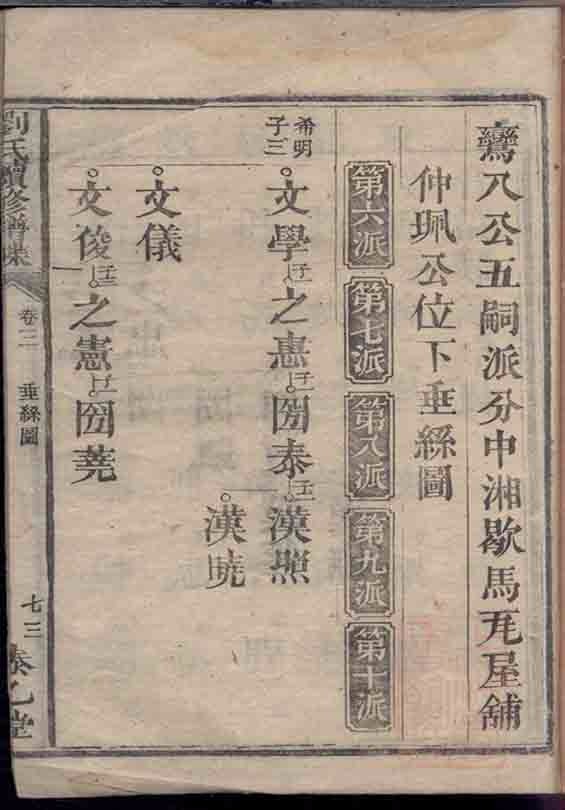 鸞八公五嗣派分中湘歇馬瓦屋舖
仲珮公位下垂絲圖
第六派 第七派 第八派 第九派 第十派
希明
子三
文學 之惠 圀泰 漢照
漢曉
文儀
文俊 之憲 圀蕘
劉氏續修譜
卷三 垂絲圖 七三 泰乙堂